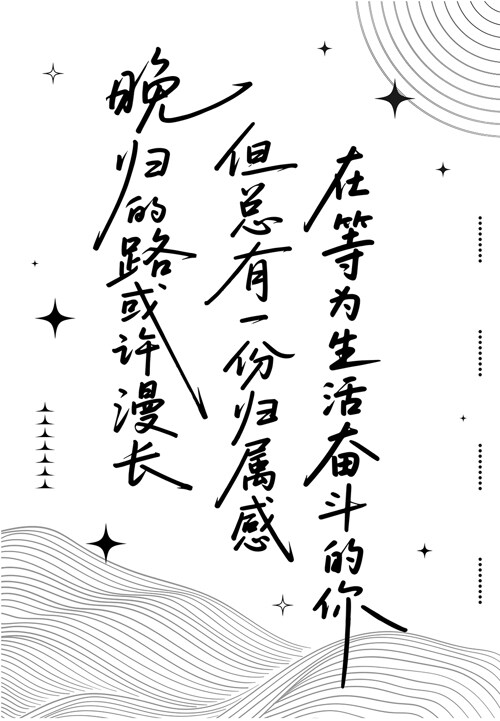 晚归的路或许漫长
但总有一份归属感
在等为生活奋斗的你